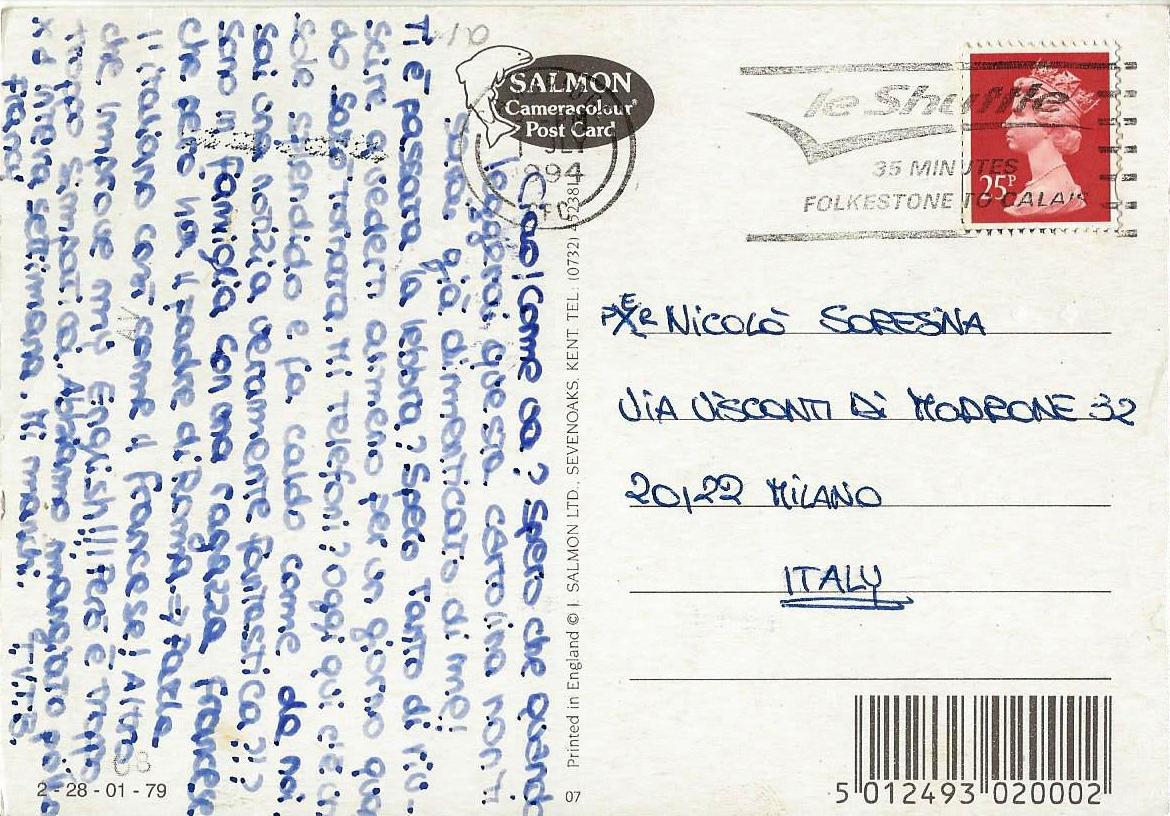 Ciao! Come va? Spero che quando
leggerai questa cartolina non ti
sarai già dimenticato di me!
Ti è passata la lebbra? Spero tanto di riu-
scire a vederti almeno per un giorno qua
do sarò tornata. Mi telefoni? Oggi qui c'è il
sole splendido e fa caldo come da noi.
Sai una notizia veramente fantastica?!?
Sono in famiglia con una ragazza francese
che però ha il padre di Roma → parla
l'italiano così come il francese! Altro
che improve my English!!! Però è troppo
troppo simpatica. Abbiamo mangiato
xd intera settimana. Mi manchi. T.V.T.B.
SALMON
Cameracolour®
Post Card
JLY
1994
le Shuttle
35 MINUTES
FOLKESTONE TO CALAIS
25P
PER NICOLÒ SORESINA
VIA VISCONTI DI MODRONE 32
20122 MILANO
ITALY
Printed in England © J. SALMON LTD., SEVENOAKS, KENT. TEL: (0732)
07
2 - 28 - 01 - 79
08
5 012493 020002